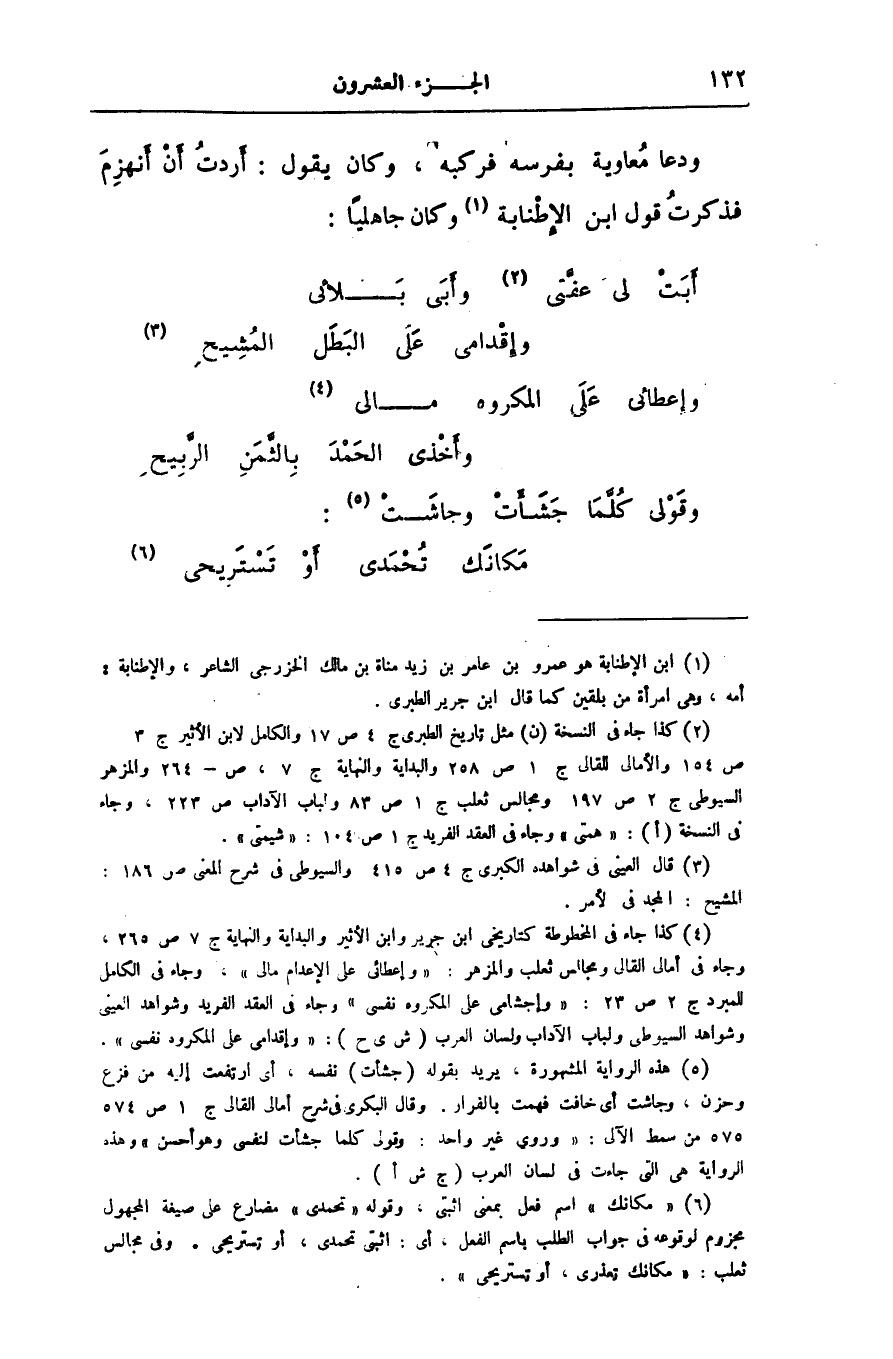 ١٣٢
الجـــزء العشرون
ودعا مُعاوية بفرسه فركبه ، وكان يقول : أردتُ أَنْ أَنهزِمَ
فذكرتُ قول ابن الإِطْنابة (١) وكان جاهليًّا :
أَبَتْ لى عفَّتى (٢) وأَبَى بَـــلائى
وإقْدامى عَلَى البَطَل المُشِيحِ (٣)
وإعطائى عَلَى المكروه مـــالى (٤)
وأَخْذى الحَمْدَ بِالثَّمَنِ الرَّبِيحِ
وقَوْلى كُلَّمَا جَشَأَتْ وجاشَـــتْ (٥) :
مَكانَك تُحْمَدى أَوْ تَسْتَرِيحى (٦)
(١) ابن الإطنابة هو عمرو بن عامر بن زيد مناة بن مالك الخزرجى الشاعر ، والإطنابة :
أمه ، وهى امرأة من بلقين كما قال ابن جرير الطبرى .
(٢) كذا جاء فى النسخة (ن) مثل تاريخ الطبرى ج ٤ ص ١٧ والكامل لابن الأثير ج ٣
ص ١٥٤ والأمالى للقالى ج ١ ص ٢٥٨ والبداية والنهاية ج ٧ ، ص – ٢٦٤ والمزهر
السيوطى ج ٢ ص ١٩٧ ومجالس ثعلب ج ١ ص ٨٣ ولباب الآداب ص ٢٢٣ ، وجاء
فى النسخة (أ) : « همتى » وجاء فى العقد الفريد ج ١ ص ١٠٤ : « شيمتى » .
(٣) قال العينى فى شواهده الكبرى ج ٤ ص ٤١٥ والسيوطى فى شرح المغنى ص ١٨٦ :
المشيح : المجد فى لأمر .
(٤) كذا جاء فى المخطوطة كتاريخى ابن جرير وابن الأثير والبداية والنهاية ج ٧ ص ٢٦٥ ،
وجاء فى أمالى القالى ومجالس ثعلب والمزهر : « وإعطائى على الإعدام مالى » ، وجاء فى الكامل
للمبرد ج ٢ ص ٢٣ : « وإجشامى على المكروه نفسى » وجاء فى العقد الفريد وشواهد العينى
وشواهد السيوطى ولباب الآداب ولسان العرب ( ش ى ح ) : « وإقدامى على المكروه نفسى » .
(٥) هذه الرواية المشهورة ، يريد بقوله (جشأت) نفسه ، أى ارتفعت إليه من فزع
وحزن ، وجاشت أى خافت فهمت بالفرار . وقال البكرى فى شرح أمالى القالى ج ١ ص ٥٧٤
٥٧٥ من سمط الآلى : « وروي غير واحد : وقولى كلما جشأت لنفسى وهو أحسن » وهذه
الرواية هى التى جاءت فى لسان العرب ( ج ش أ ) .
(٦) « مكانك » اسم فعل بمعنى اثبتى ، وقوله « تحمدى » مضارع على صيغة المجهول
مجزوم لوقوعه فى جواب الطلب باسم الفعل ، أى : اثبتى تحمدى ، أو تستريحى . وفى مجالس
ثعلب : « مكانك تعذرى ، أو تستريحى » .